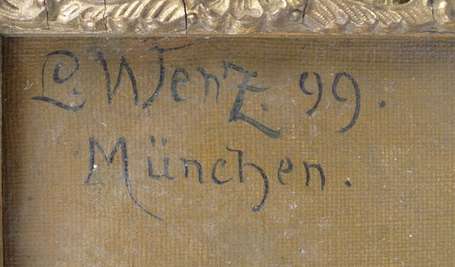 L. Wenz. 99.
München.